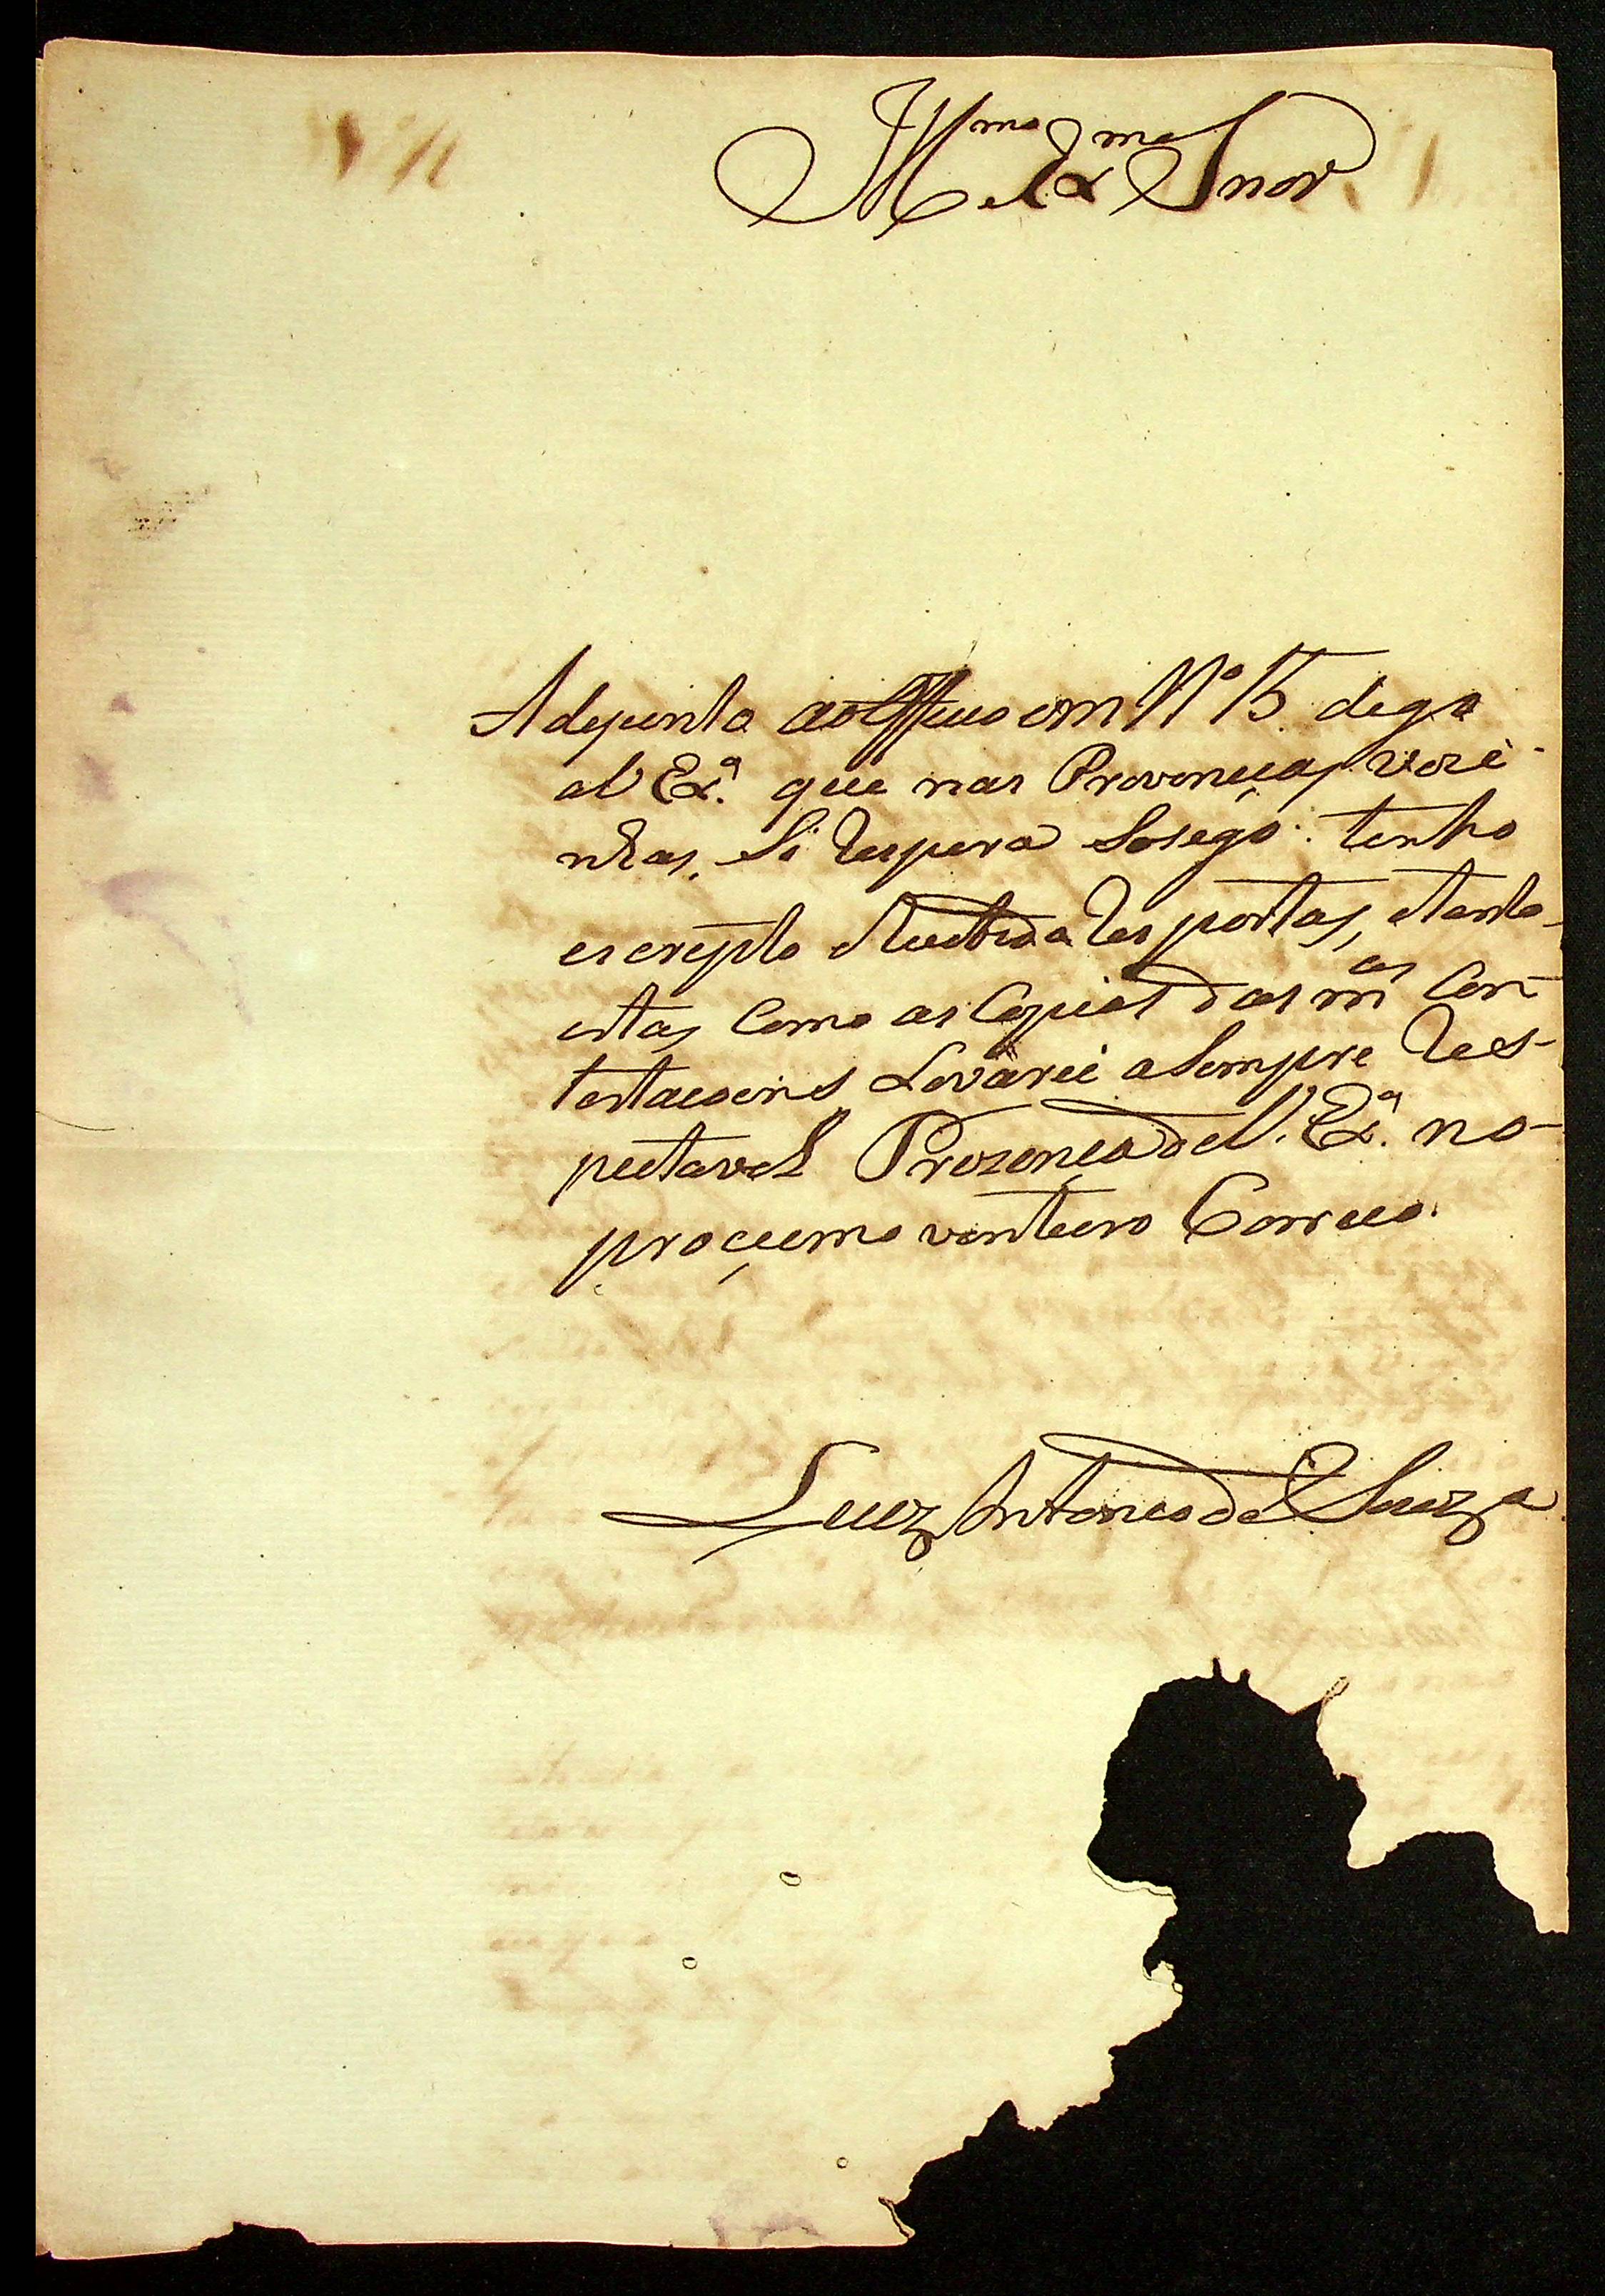 Illmo e Exmo Snor
Adejunto ao Officio em No 15 digo
a V Exa. que nas Provencias vezi-
nhas, Si respira Sosego: tenho
escripto e tuctido as respostas, e tanto
estas Como as Copias das mas Con-
testacoens Levarei a Sempre Res-
pectavel Prezença de V. Exa. no-
procimo vinteiro Correio.
Luiz Antonio de Souza